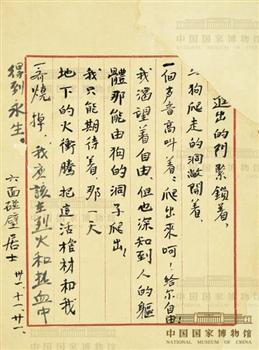 進出的門緊鎖着,
狗爬走的洞敞開着,
一個声音高叫着:爬出來呵!給尔自由!
我渴望着自由,但也深知到人的軀
體那能由狗的洞子爬出!
我只能期待着,那一天
地下的火衝騰,把這活棺材和我
一齊燒掉,我應該在烈火和热血中
得到永生。
六面碰壁居士
卅一.十一.廿一.
中国国家博物馆
NATIONAL MUSEUM OF CHINA